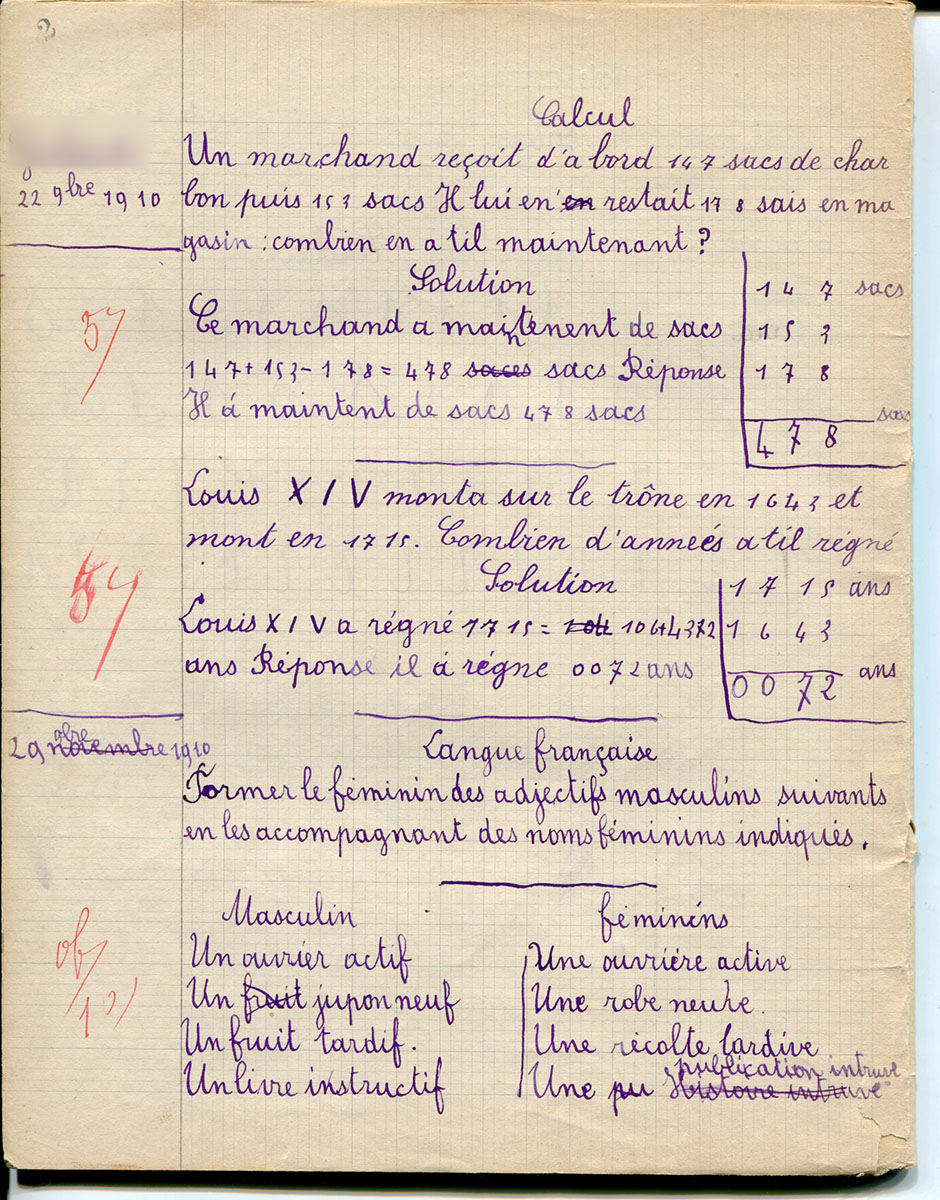 2
Calcul
Un marchand reçoit d'a bord 147 sacs de char
22 9bre 1910
bon puis 153 sacs Il lui en' en restait 178 sais en ma
gasin : combien en a til maintenant ?
Solution
147 sacs
Ce marchand a maintenent de sacs
153
147+153-178=478 sacs Réponse
178
Il á maintent de sacs 478 sacs
sacs
478
Louis XIV monta sur le trône en 1643 et
mont en 1715. Combien d'anneés a til régné
Solution
1715 ans
Louis XIV a régné 1715=
1643
ans Réponse il á régne 0072 ans
ans
0072
29 novembre 9bre 1910
Langue française
Former le féminin des adjectifs masculins suivants
en les accompagnant des noms féminins indiqués.
Masculin
féminins
Un ouvrier actif
Une ouvriére active
Un fruit jupon neuf
Une robe neuve.
Un fruit tardif.
Une récolte tardive
publication intruse
Un livre instructif
Une pu Histoire intruve